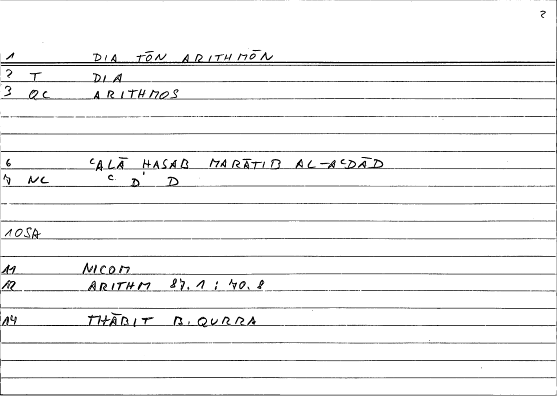 2
1 DIA TŌN ARITHMŌN
2 T DIA
3 QC ARITHMOS
6 ʿALĀ HASAB MARĀTIB AL-AʿDĀD
7 NC ʿ D' D
10SA
11 NICOM
12 ARITHM 87.1 ; 70.8
14 THĀBIT B. QURRA